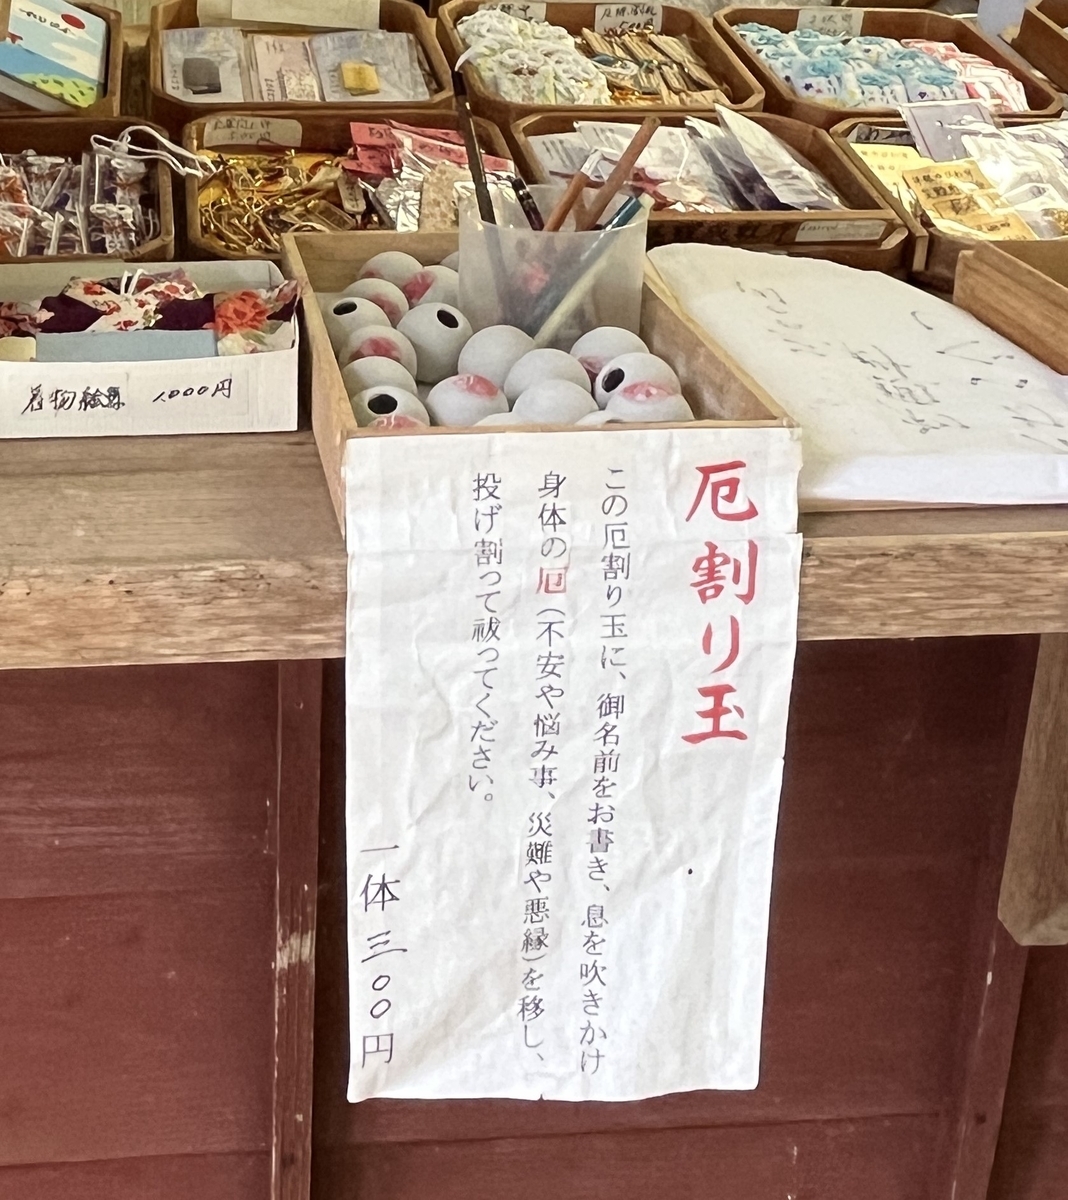 厄割り玉
この厄割り玉に、御名前をお書き、息を吹きかけ
身体の厄（不安や悩み事、災難や悪縁）を移し、
投げ割って祓ってください。
一体 三〇〇円
着物絵馬 1,000円